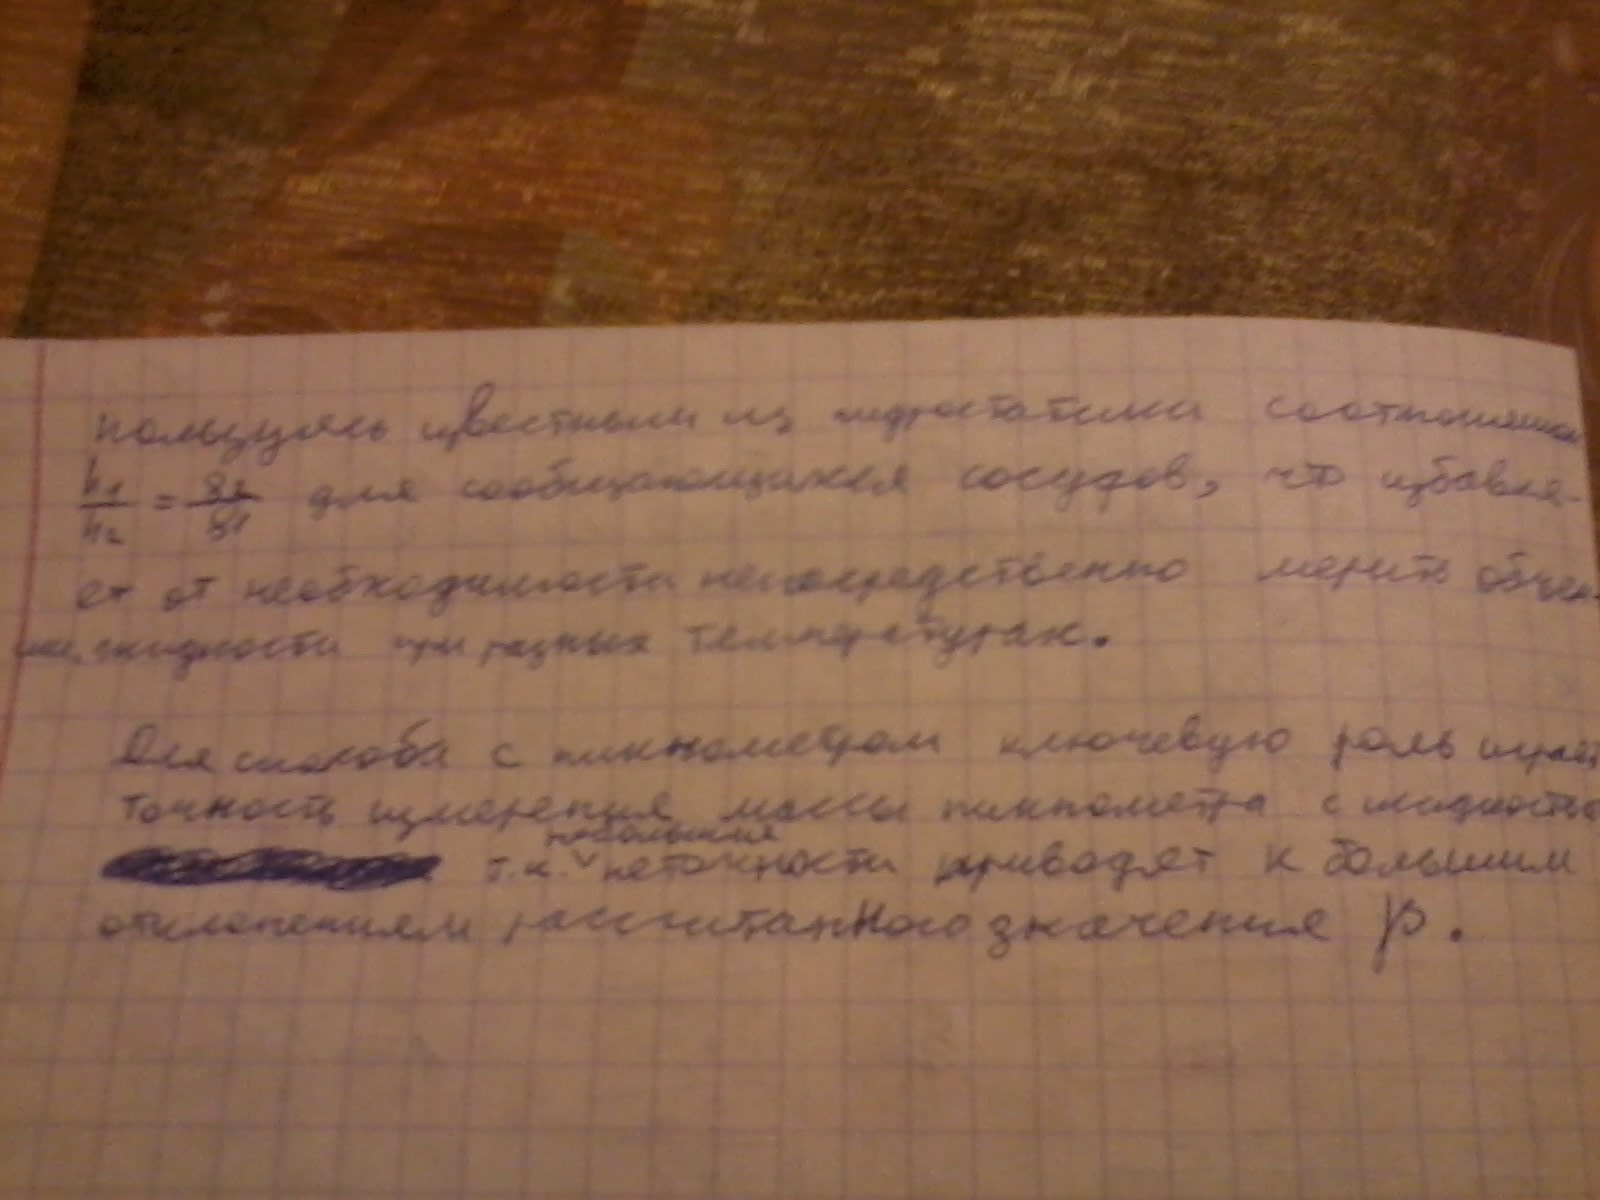 пользуясь известным из гидростатики соотношением
h₁/h₂ = ρ₂/ρ₁ для сообщающихся сосудов, что избавля-
ет от необходимости непосредственно мерить объем
жидкости при разных температурах.
Для способа с пикнометром ключевую роль играет
точность измерения массы пикнометра с жидкостью
небольшие
т.к. неточности приводят к большим
отклонениям рассчитанного значения β.